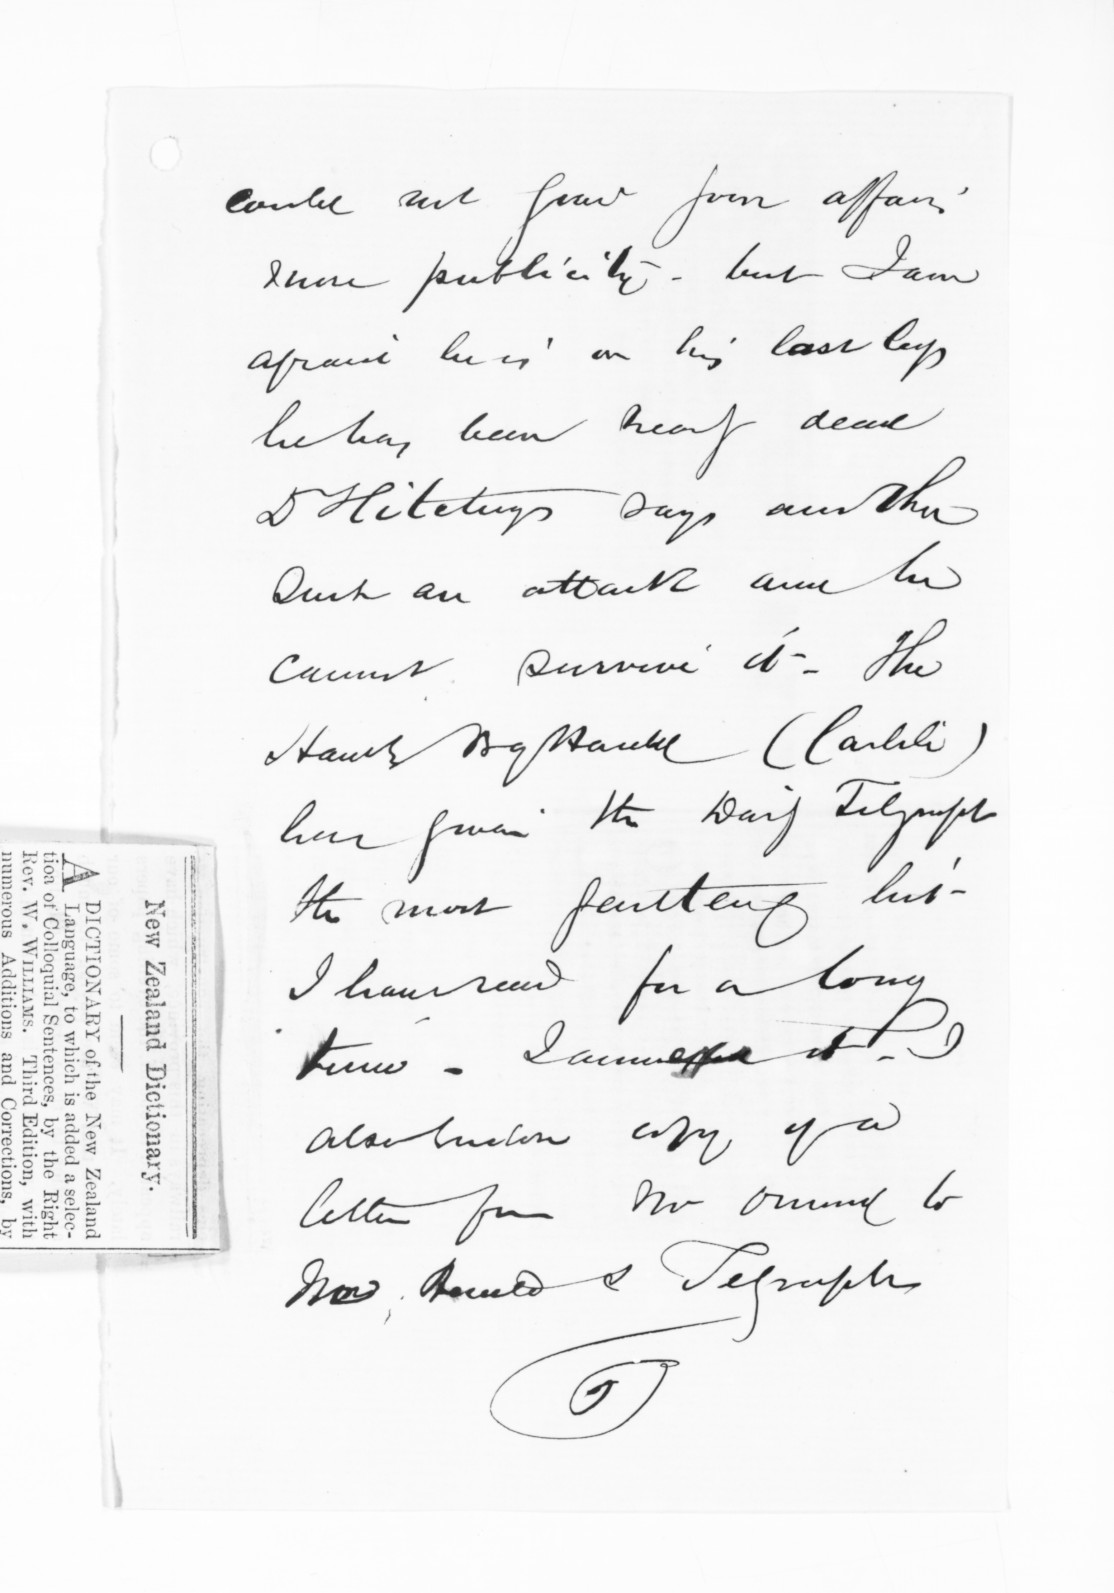 could not give your affairs
more publicity - but I am
afraid he is on his last legs
he has been nearly dead
Dr Hitchings says another
such an attack and he
cannot survive it - The
Hawkes Bay Herald (Carlile)
has given the Daily Telegraph
the most
I have read for a long
time - I it - I
also enclose copy of a
letter from Mr Ormond to
Herald & Telegraph
New Zealand Dictionary.
A DICTIONARY of the New Zealand
Language, to which is added a selec-
tion of Colloquial Sentences, by the Right
Rev. W. WILLIAMS. Third Edition, with
numerous Additions and Corrections, by